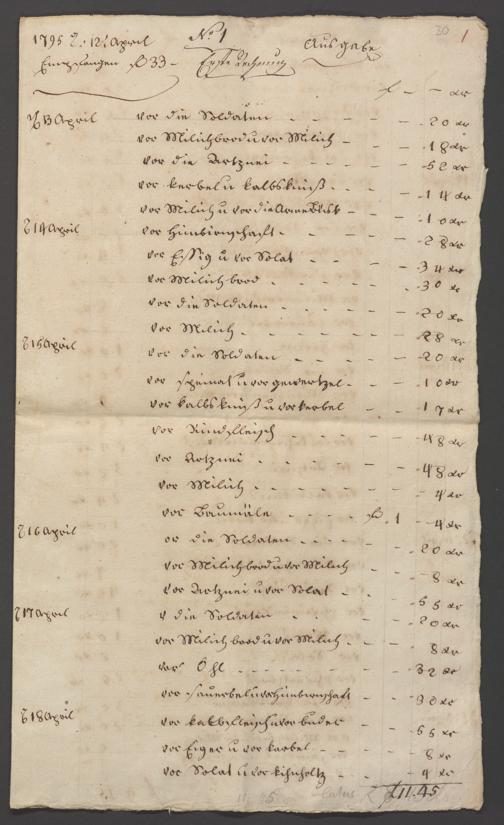 30 1
1795 d: 12t April No 1 Ausgabe
Empfangen f 33 — Erste Rechnung
f — — xr
d 13 April vor die Soldaten - - - - 20 xr
vor Milichbrod u vor Milich - - 18 xr
vor die Artznei - - - - 52 xr
vor kerbel u kalbsknüß - - - 14 xr
vor Milich u vor die - - 10 xr
d 14 April vor - - - 28 xr
vor Essig u vor Solat - - - 34 xr
vor Milichbrod - - - 30 xr
vor die Soldaten - - - 20 xr
vor Milich - - - 28 xr
d 15 April vor die Soldaten - - - 20 xr
vor speinat u vor gewertzel - - 10 xr
vor kalbsknüß u vor kerbel - - 17 xr
vor Rindfleisch - - - 48 xr
vor Artznei - - - 48 xr
vor Milich - - - 4 xr
vor Baumäle - - - f 1 - 4 xr
d 16 April or die Soldaten - - - 20 xr
vor Milichbrod u vor Milich - 8 xr
vor Artznei u vor Solat - - 55 xr
d 17 April v die Soldaten - - - 20 xr
vor Milichbrod u vor Milich - - 8 xr
vor Öhl - - - - 32 xr
vor sauerbel u vor - 30 xr
d 18 April vor kalbfleisch u vor buder - 55 xr
vor Eiger u vor kerbel - - - 8 xr
vor Solat u vor kihnholtz - - 4 xr
latus f 11.45